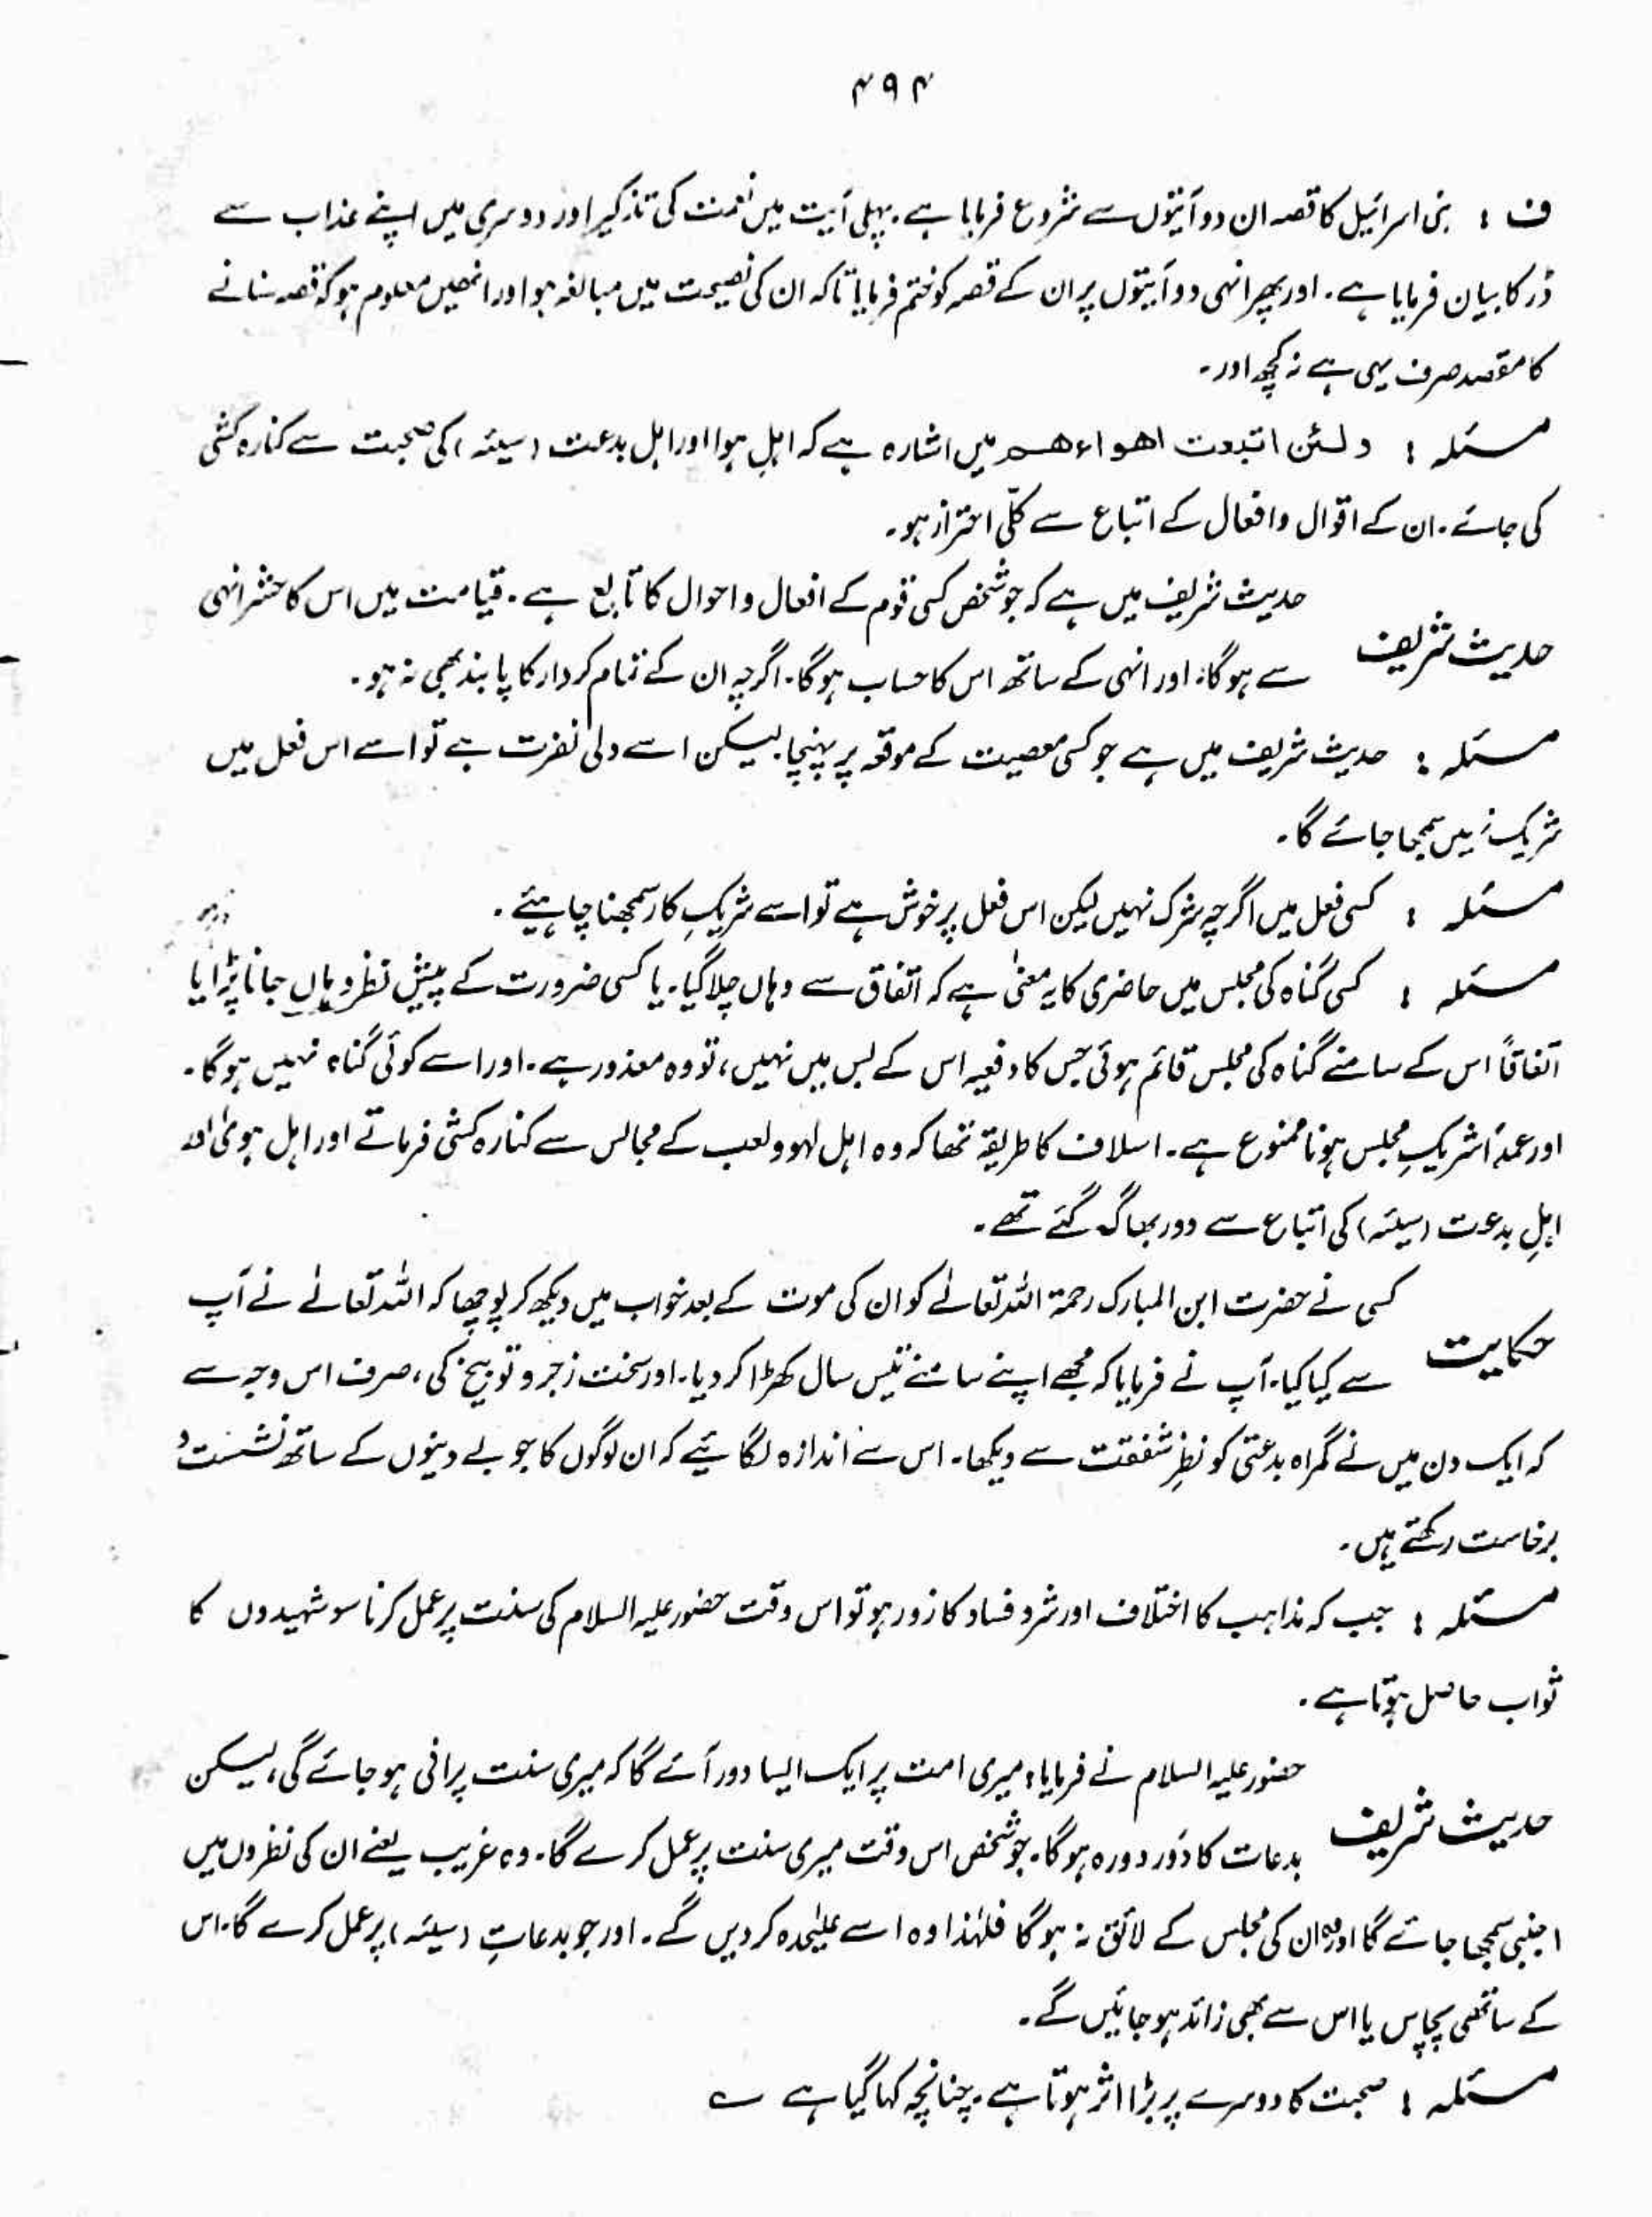 ۴۹۴
ف : بنی اسرائیل کا قصہ ان دو آیتوں سے شروع فرمایا ہے۔ پہلی آیت میں نعمت کی تذکیر اور دوسری میں اپنے عذاب سے
ڈر کا بیان فرمایا ہے۔ اور پھر انہی دو آیتوں پر ان کے قصہ کو ختم فرمایا تاکہ ان کی نصیحت میں مبالغہ ہو اور انھیں معلوم ہو کہ قصہ سنانے
کا مقصد صرف یہی ہے نہ کچھ اور۔
مسئلہ : ولئن اتبعت اھواءھم میں اشارہ ہے کہ اہل ہوا اور اہل بدعت (سیئہ) کی صحبت سے کنارہ کشی
کی جائے۔ ان کے اقوال و افعال کے اتباع سے کلّی احتراز ہو۔
حدیث شریف میں ہے کہ جو شخص کسی قوم کے افعال و احوال کا تابع ہے۔ قیامت میں اس کا حشر انہی
حدیث شریف
سے ہوگا، اور انہی کے ساتھ اس کا حساب ہوگا۔ اگرچہ ان کے تمام کردار کا پابند بھی نہ ہو۔
مسئلہ : حدیث شریف میں ہے جو کسی معصیت کے موقعہ پر پہنچا۔ لیکن اسے دلی نفرت ہے تو اسے اس فعل میں
شریک نہیں سمجھا جائے گا۔
مسئلہ : کسی فعل میں اگرچہ شرک نہیں لیکن اس فعل پر خوش ہے تو اسے شریکِ کار سمجھنا چاہیئے۔
مسئلہ : کسی گناہ کی مجلس میں حاضری کا یہ معنیٰ ہے کہ اتفاق سے وہاں چلا گیا۔ یا کسی ضرورت کے پیش نظر وہاں جانا پڑا یا
اتفاقاً اس کے سامنے گناہ کی مجلس قائم ہوئی جس کا دفعیہ اس کے بس میں نہیں، تو وہ معذور ہے۔ اور اسے کوئی گناہ نہیں ہوگا۔
اور عمداً شریکِ مجلس ہونا ممنوع ہے۔ اسلاف کا طریقہ تھا کہ وہ اہل لہو و لعب کے مجالس سے کنارہ کشی فرماتے اور اہل ہویٰ اور
اہلِ بدعت (سیئہ) کی اتباع سے دور بھاگ گئے تھے۔
کسی نے حضرت ابن المبارک رحمۃ اللہ تعالٰے کو ان کی موت کے بعد خواب میں دیکھ کر پوچھا کہ اللہ تعالٰے نے آپ
حکایت
سے کیا کیا۔ آپ نے فرمایا کہ مجھے اپنے سامنے تیس سال کھڑا کر دیا۔ اور سخت زجر و توبیخ کی، صرف اس وجہ سے
کہ ایک دن میں نے گمراہ بدعتی کو نظرِ شفقت سے دیکھا۔ اس سے اندازہ لگائیے کہ ان لوگوں کا جو بے دینوں کے ساتھ نشست و
برخاست رکھتے ہیں۔
مسئلہ : جب کہ مذاہب کا اختلاف اور شر و فساد کا زور ہو تو اس وقت حضور علیہ السلام کی سنت پر عمل کرنا سو شہیدوں کا
ثواب حاصل ہوتا ہے۔
حضور علیہ السلام نے فرمایا، میری امت پر ایک ایسا دور آئے گا کہ میری سنت پرانی ہو جائے گی، لیکن
حدیث شریف
بدعات کا دَور دورہ ہوگا۔ جو شخص اس وقت میری سنت پر عمل کرے گا۔ وہ غریب یعنے ان کی نظروں میں
اجنبی سمجھا جائے گا اور وہ ان کی مجلس کے لائق نہ ہوگا فلہٰذا وہ اسے علیٰحدہ کر دیں گے۔ اور جو بدعاتِ (سیئہ) پر عمل کرے گا۔ اس
کے ساتھی پچاس یا اس سے بھی زائد ہو جائیں گے۔
مسئلہ : صحبت کا دوسرے پر بڑا اثر ہوتا ہے۔ چنانچہ کہا گیا ہے ؎